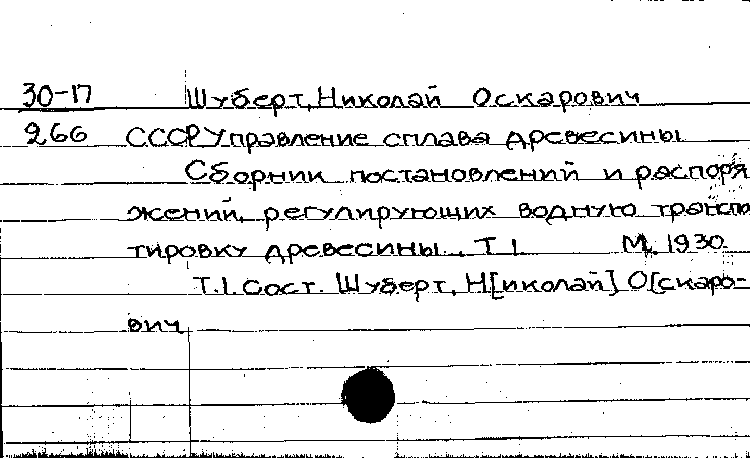 30-17 Шуберт, Николай Оскарович
266 СССР Управление сплава древесины
Сборник постановлений и распоря
жений, регулирующих водную транспо
тировку древесины. Т.1 М., 1930.
Т.1. Сост. Шуберт, Н[иколай] О[скаро-
вич